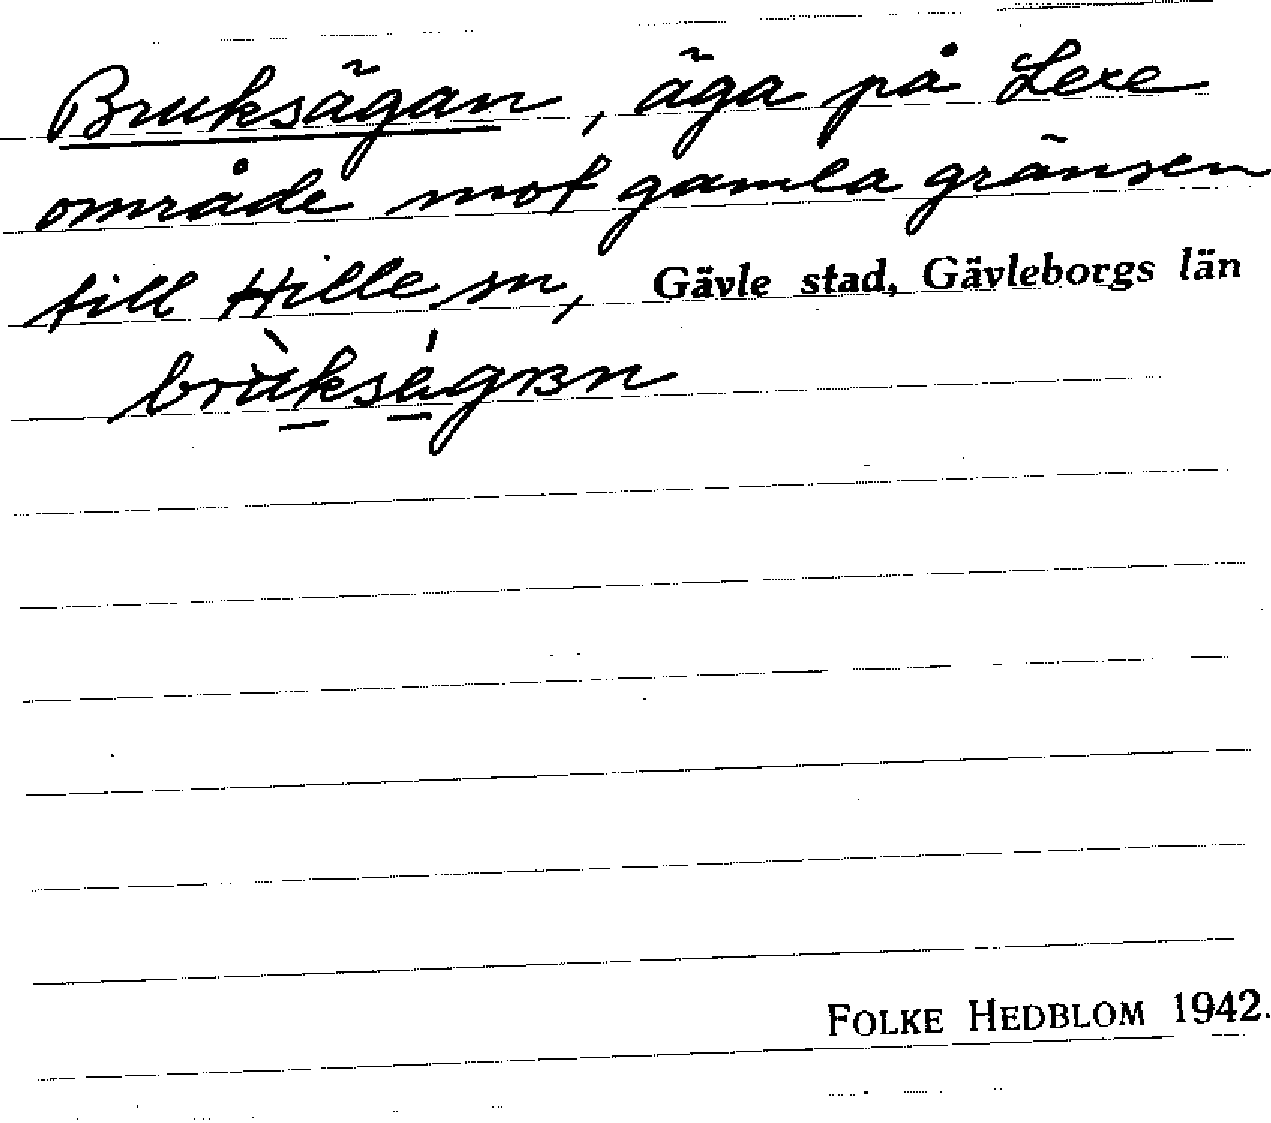 Bruksägan, äga på Lexe
område mot gamla gränsen
till Hille sn, Gävle stad, Gävleborgs län
FOLKE HEDBLOM 1942.